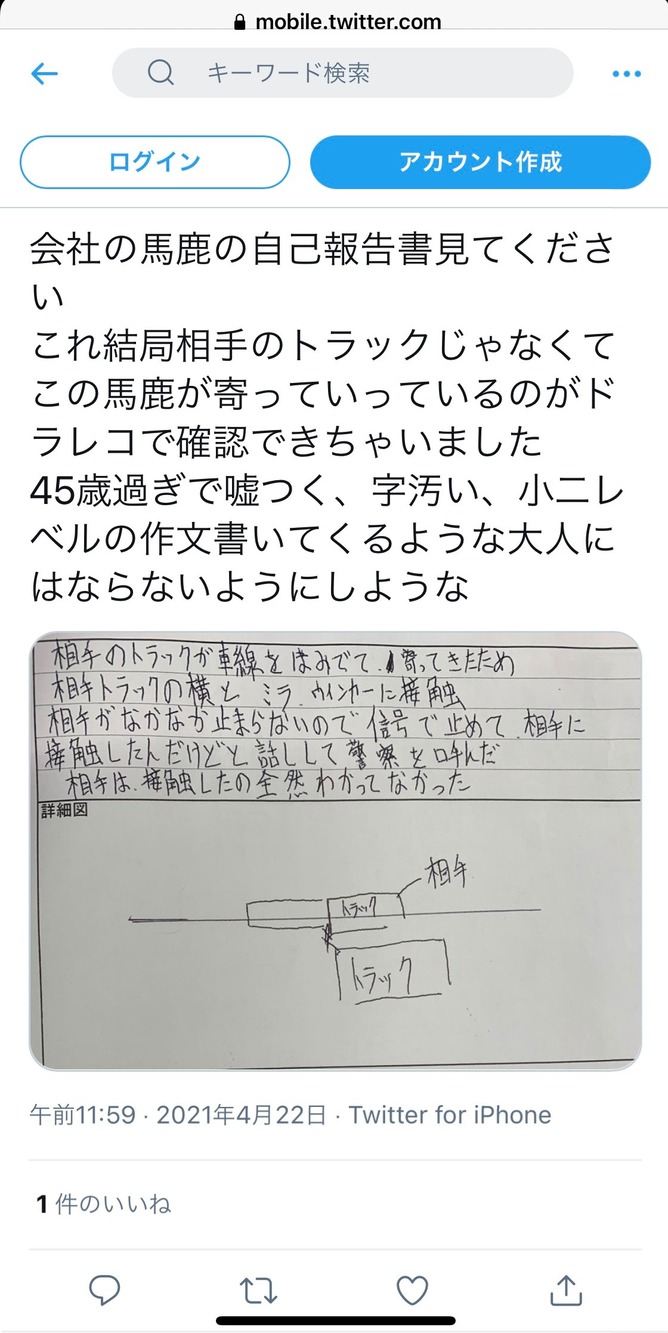 mobile.twitter.com
キーワード検索
ログイン
アカウント作成
会社の馬鹿の自己報告書見てくださ
い
これ結局相手のトラックじゃなくて
この馬鹿が寄っていっているのがド
ラレコで確認できちゃいました
45歳過ぎで嘘つく、字汚い、小二レ
ベルの作文書いてくるような大人に
はならないようにしような
相手のトラックが車線をはみでて、寄ってきたため
相手トラックの横とミラ、ウィンカーに接触
相手がなかなか止まらないので信号で止めて、相手に
接触したんだけどと話しして警察を呼んだ
相手は、接触したの全然わかってなかった
詳細図
相手
トラック
トラック
午前11:59 · 2021年4月22日 · Twitter for iPhone
1 件のいいね